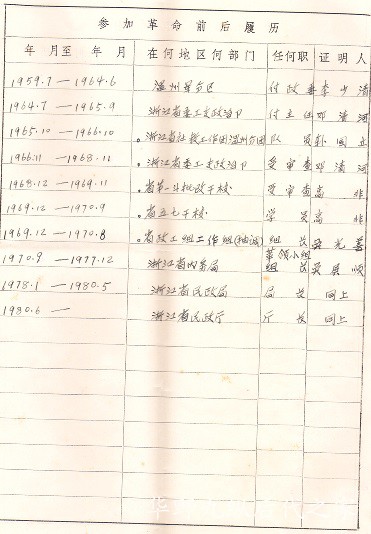 参加革命前后履历
年 月至 年 月 在何地区何部门 任何职 证明人
1959.7 — 1964.6 温州军分区 付政委 李少清
1964.7 — 1965.9 浙江省委工交政治 付主任 邓清河
1965.10 — 1966.10 浙江省社教工作团温州分团 队员
1966.11 — 1968.11 浙江省委工交政治 受审查 邓清河
1968.12 — 1969.11 省第一斗批改干校 受审查 高非
1969.12 — 1970.9 省五七干校 学员 高非
1969.12 — 1970.8 省政工组工作组 组长
1970.9 — 1977.12 浙江省内务局 革领小组
组长
1978.1 — 1980.5 浙江省民政局 局长 同上
1980.6 — 浙江省民政厅 厅长 同上